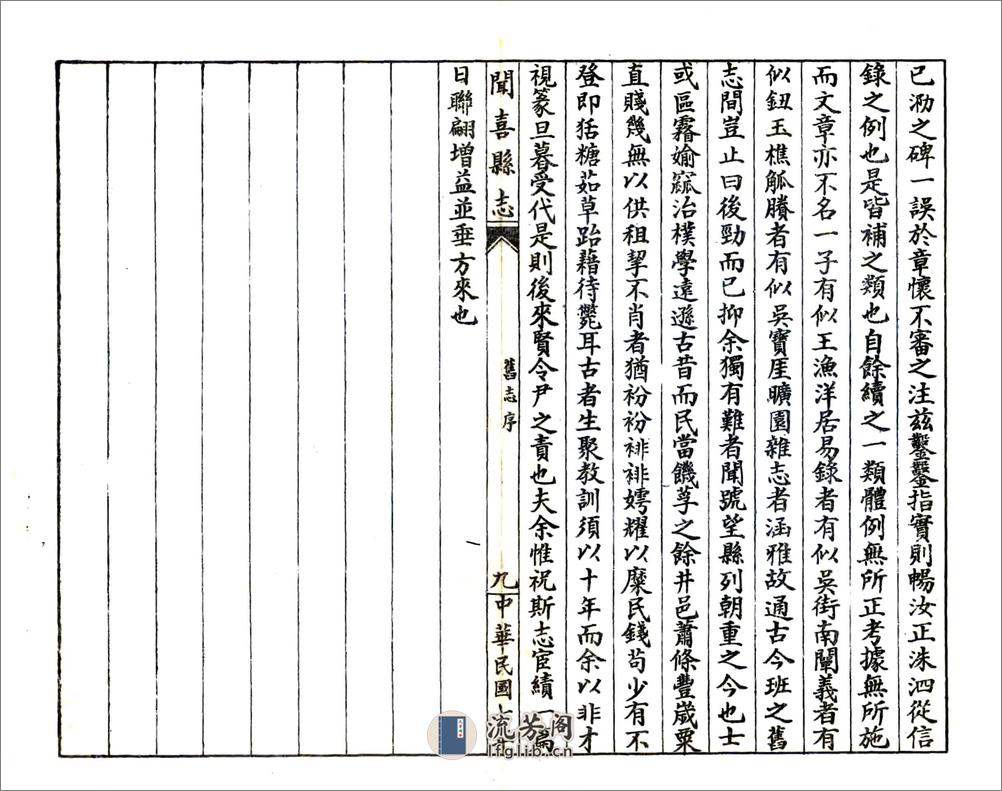 已泐之碑一誤於章懷不審之注兹鑿鑿指實則暢汝正洙泗從信
錄之例也是皆補之類也自餘續之一類體例無所正考據無所施
而文章亦不名一子有似王漁洋居易錄者有似吳街南闡義者有
似鈕玉樵觚賸者有似吳寶厓曠園雜志者涵雅故通古今班之舊
志間豈止曰後勁而已抑余獨有難者聞號望縣列朝重之今也士
或區霿婾窳治樸學遠遜古昔而民當饑莩之餘井邑蕭條豐歲粟
直賤幾無以供租挈不肖者猶衯衯裶裶嫮耀以糜民錢苟少有不
登即狧糠茹草跆藉待斃耳古者生聚教訓須以十年而余以非才
視篆旦暮受代是則後來賢令尹之責也夫余惟祝斯志宦績一篇
聞喜縣志
舊志序
九
中華民國七年
日聯翩增益並垂方來也
流芳阁
lfglib.cn